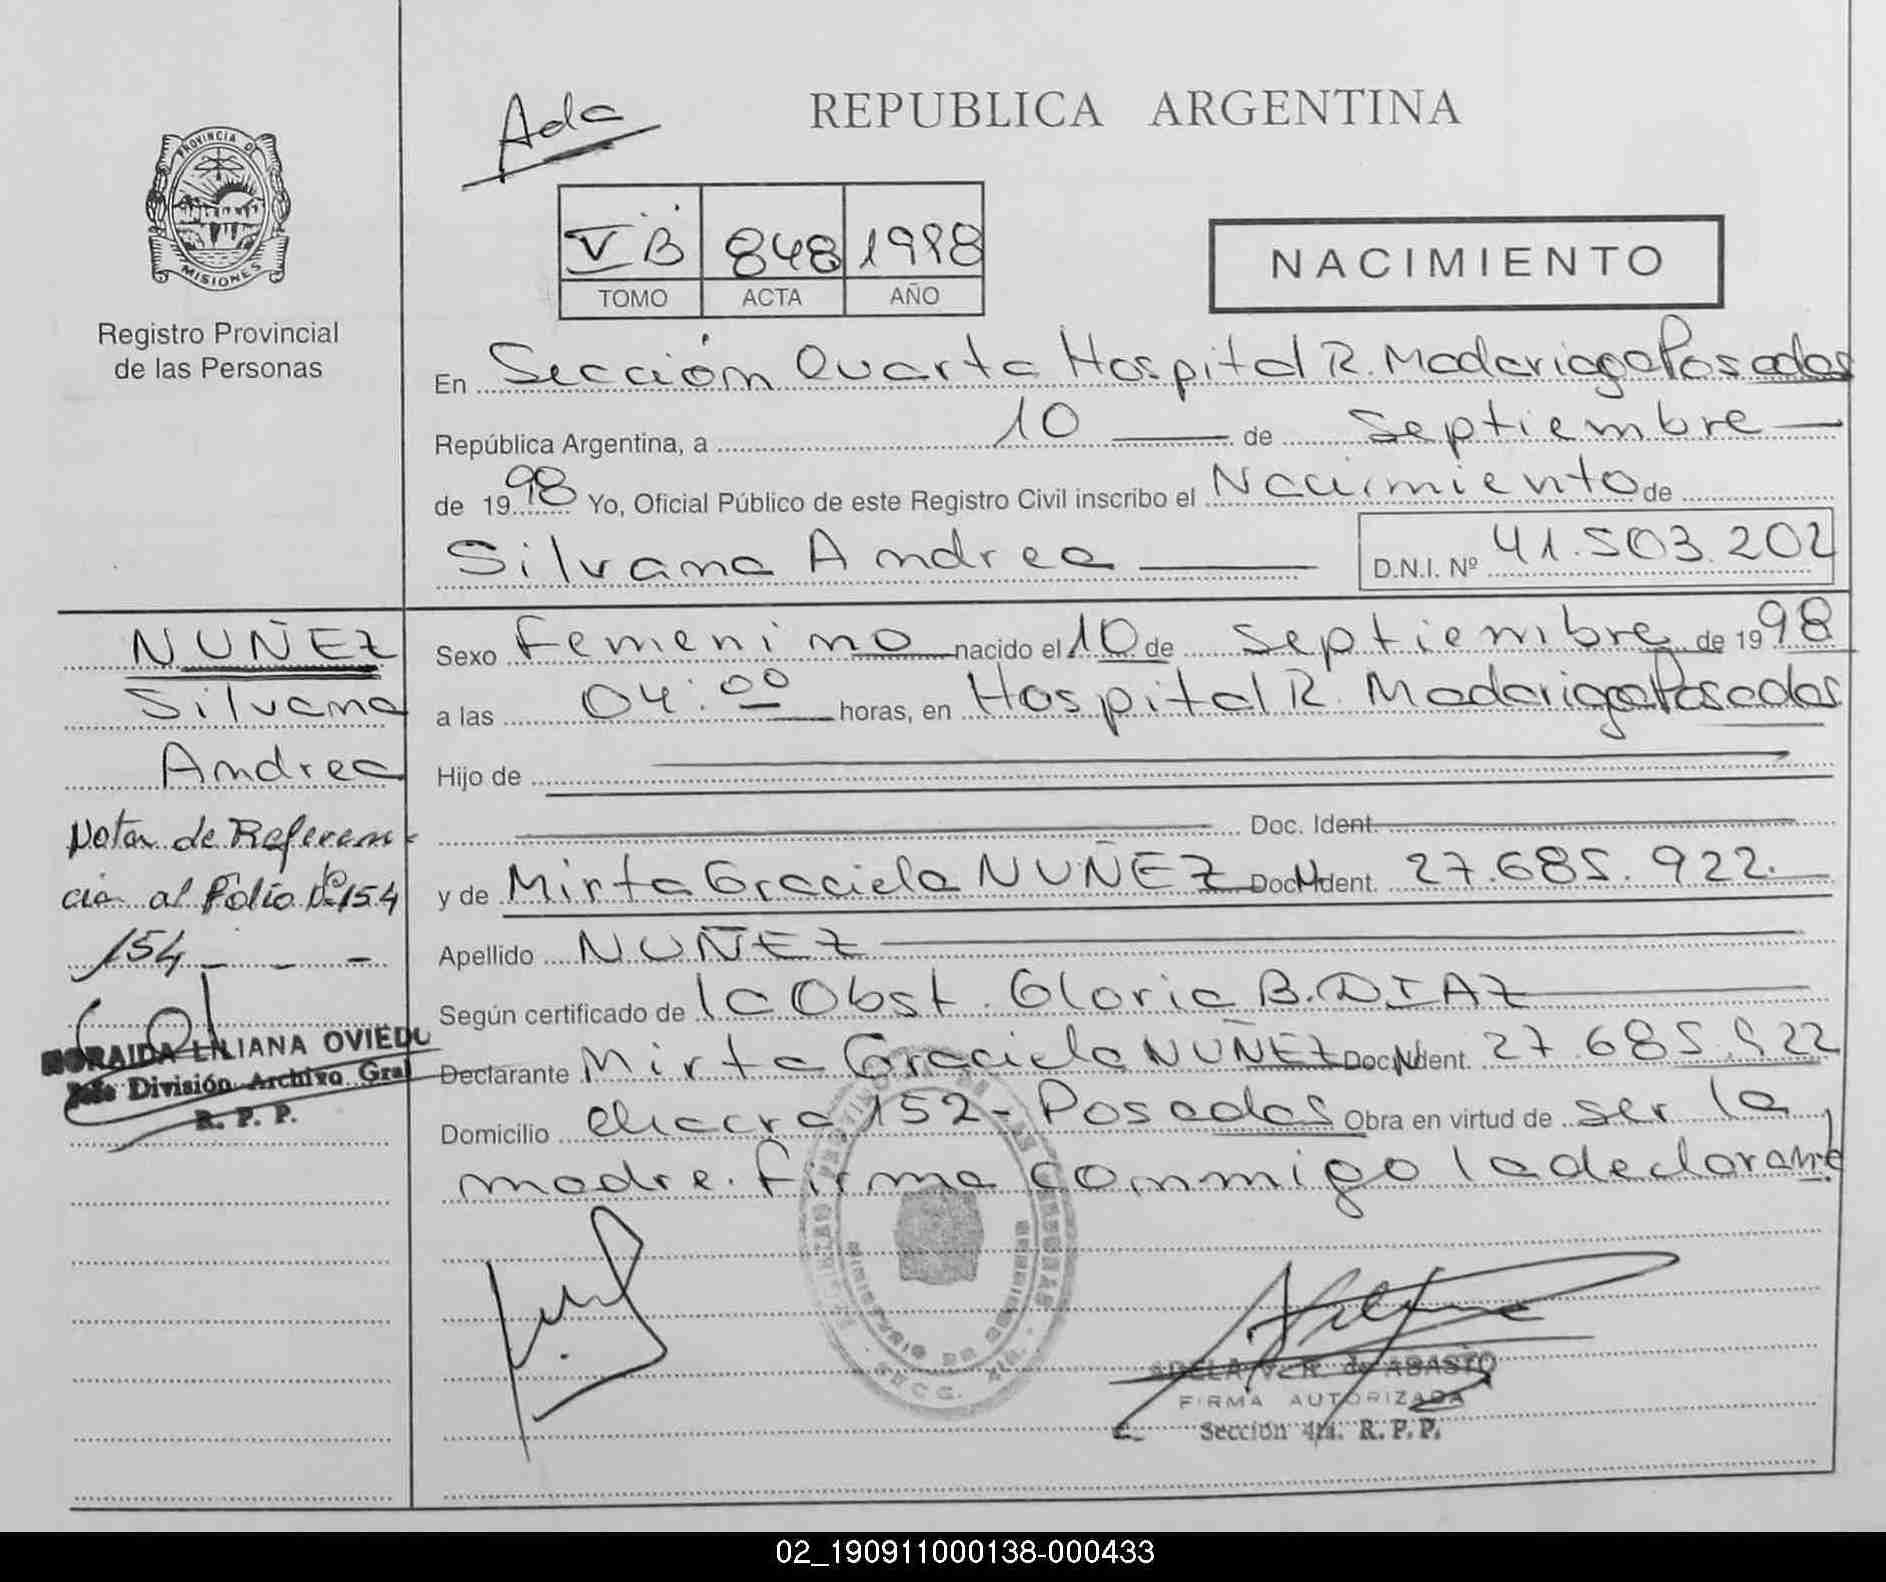 Ada
REPUBLICA ARGENTINA
PROVINCIA DE
MISIONES
Registro Provincial
de las Personas
V B 848 1998
TOMO ACTA AÑO
NACIMIENTO
En Sección Quarta Hospital R. Madariaga Posadas
República Argentina, a 10 de Septiembre
de 1998 Yo, Oficial Público de este Registro Civil inscribo el Nacimiento de
Silvana Andrea D.N.I. Nº 41.503.202
NUÑEZ
Silvana
Andrea
Nota de Referen-
cia al Folio Nº 154
154
LILIANA OVIEDO
Jefe División Archivo Gral
R. P. P.
Sexo Femenino nacido el 10 de Septiembre de 1998
a las 04:00 horas, en Hospital R. Madariaga Posadas
Hijo de
Doc. Ident.
y de Mirta Graciela NUÑEZ Doc. Ident. 27.685.922.
Apellido NUÑEZ
Según certificado de la Obst. Gloria B. DIAZ
Declarante Mirta Graciela NUÑEZ Doc. Ident. 27.685.922
Domicilio chacra 152 - Posadas Obra en virtud de ser la
madre. firma conmigo la declarante
ADELA V. R. de ABASTO
FIRMA AUTORIZADA
Sección 4ta. R. P. P.
02_190911000138-000433